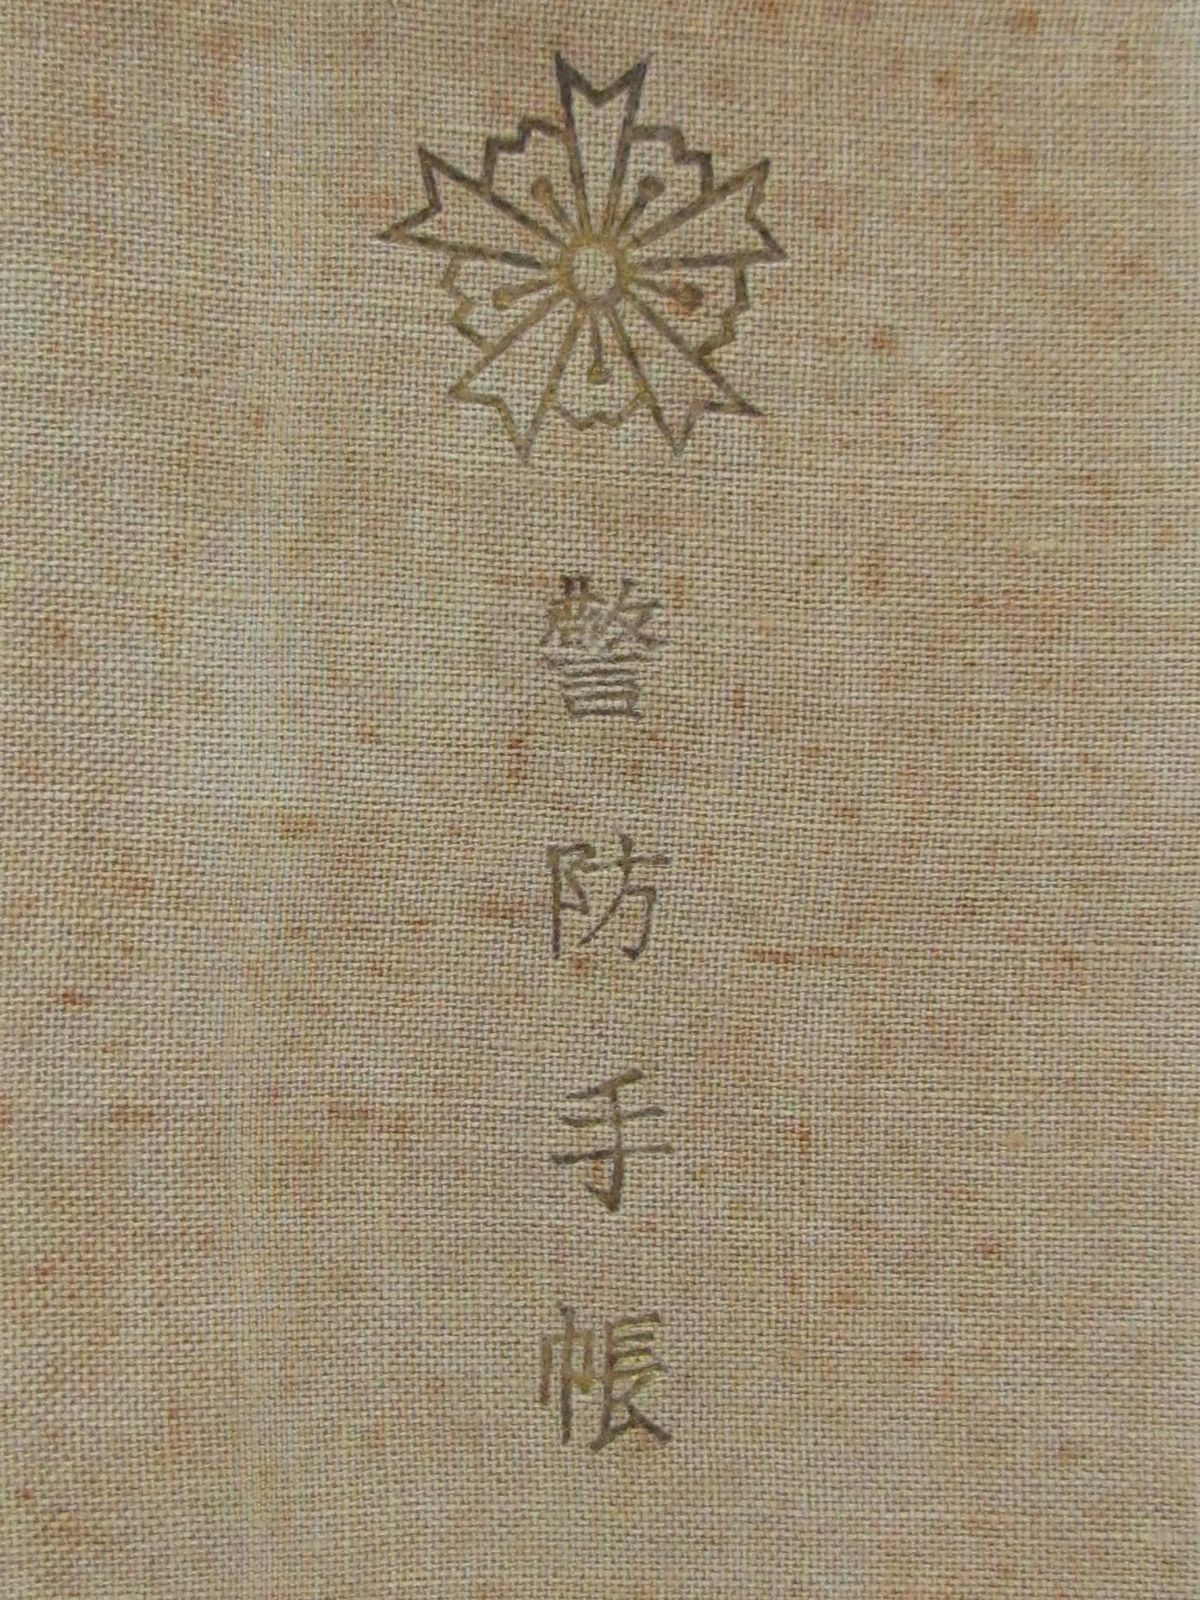 警防手帳